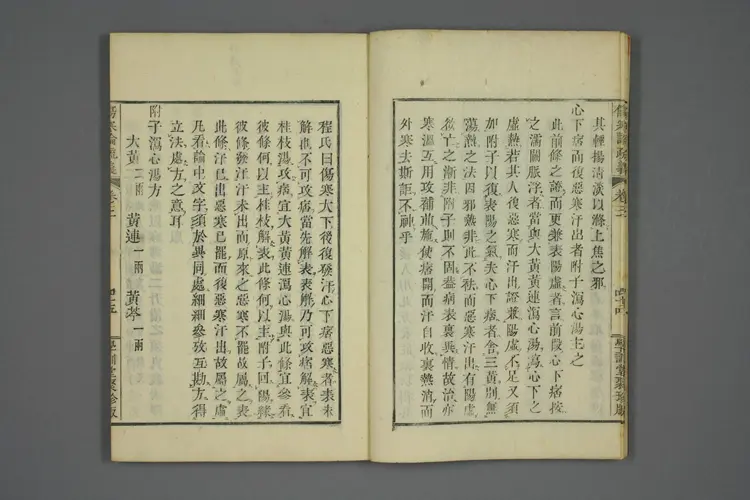 其輕揚淸淡以滌上焦之邪
心下痞而後惡寒汗出者附子瀉心湯主之
此前條之證而更兼表陽虛者言前段心下痞按
之濡關脈浮者當與大黃黃連瀉心湯瀉心下之
虛熱若其人後惡寒而汗出證兼陽虛不足又須
加附子以復表陽之氣夫心下痞者舍三黃則無
蕩熱之法因邪熱非此不祛而惡寒汗出有陽虛
亡之漸非附子則不固蓋病表裏異情故治亦
寒溫互用攻補並施使痞開而汗自收裏熱消而
外寒去斯詎不神乎
程氏曰傷寒大下後復發汗心下痞惡寒者表未
解也不可攻痞當先解表表解乃可攻痞解表宜
桂枝湯攻痞宜大黃黃連瀉心湯與此條宜參看
彼條何以主桂枝解表此條何以主附子回陽緣
彼條發汗汗未出而原來之惡寒不罷故屬之表
此條汗已出惡寒已罷而復惡寒汗出故屬之虛
凡看論中文字須於異同處細細參攷互勘方得
立法處方之意耳
附子瀉心湯方
大黃二兩 黃連一兩 黃芩一兩
傷寒論疏義 卷三
學訓堂聚珍版